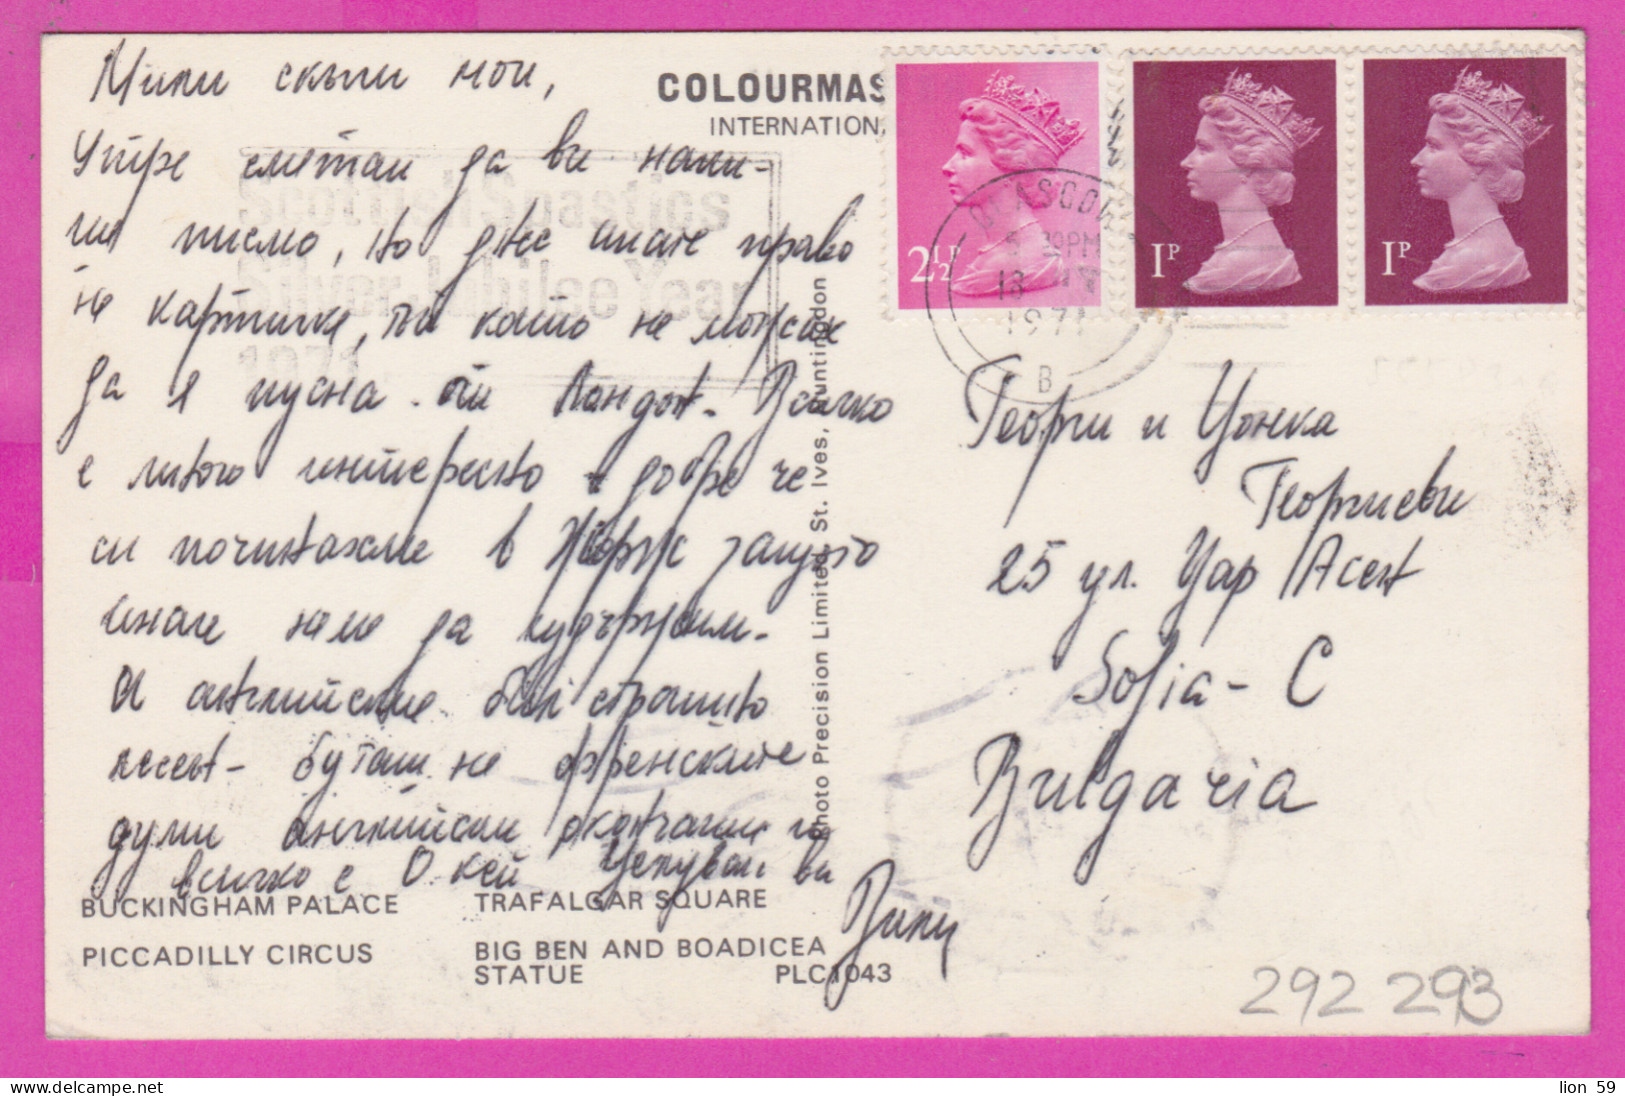 Мили скъпи мои,
Утре смятам да ви напи-
ша писмо, но днес пиша право
на картичка, тъй като не можах
да я пусна от Лондон. Всичко
е много интересно - добре че
си починахме в Йорк защото
иначе няма да издържим.
А английския бил страшно
лесен - буташ на френските
думи английски окончания и
всичко е О кей Целувам ви
Вили
COLOURMAS
INTERNATION
Scottish Spastics
Silver Jubilee Year
1971
2½P
1P
1P
GLASGOW
5 30PM
18
1971
B
Георги и Цонка
Георгиеви
25 ул. Цар Асен
Sofia - C
Bulgaria
Photo Precision Limited, St. Ives, Huntingdon
BUCKINGHAM PALACE TRAFALGAR SQUARE
PICCADILLY CIRCUS BIG BEN AND BOADICEA
STATUE PLC1043
292 293
delcampe.net
lion 59